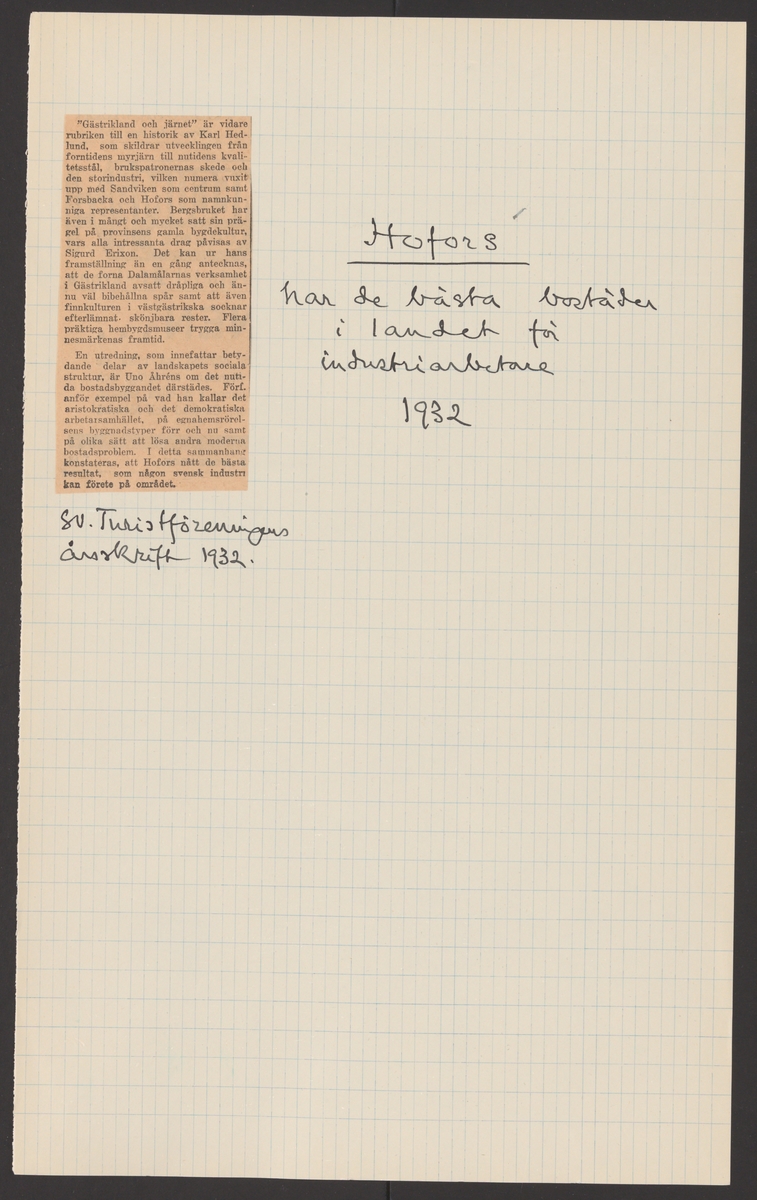 "Gästrikland och järnet" är vidare
rubriken till en historik av Karl Hed-
lund, som skildrar utvecklingen från
forntidens myrjärn till nutidens kvali-
tetsstål, brukspatronernas skede och
den storindustri, vilken numera vuxit
upp med Sandviken som centrum samt
Forsbacka och Hofors som namnkun-
niga representanter. Bergsbruket har
även i mångt och mycket satt sin prä-
gel på provinsens gamla bygdekultur,
vars alla intressanta drag påvisas av
Sigurd Erixon. Det kan ur hans
framställning än en gång antecknas,
att de forna Dalamålarnas verksamhet
i Gästrikland avsatt dråpliga och än-
nu väl bibehållna spår samt att även
finnkulturen i västgästrikska socknar
efterlämnat skönjbara rester. Flera
präktiga hembygdsmuseer trygga min-
nesmärkenas framtid.
En utredning, som innefattar bety-
dande delar av landskapets sociala
struktur, är Uno Åhréns om det nuti-
da bostadsbyggandet därstädes. Förf.
anför exempel på vad han kallar det
aristokratiska och det demokratiska
arbetarsamhället, på egnahemsrörel-
sens byggnadstyper förr och nu samt
på olika sätt att lösa andra moderna
bostadsproblem. I detta sammanhang
konstateras, att Hofors nått de bästa
resultat, som någon svensk industri
kan förete på området.
Sv. Turistföreningens
årsskrift 1932.
Hofors
har de bästa bostäder
i landet för
industriarbetare
1932